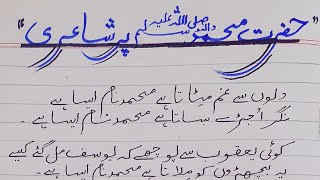 "حضرت محمد صلی اللہ علیہ وآلہ وسلم پر شاعری"
دلوں سے غم مٹاتا ہے محمد نام ایسا ہے
نگر اجڑے بساتا ہے محمد نام ایسا ہے۔
کوئی یعقوب سے پوچھے کہ یوسف مل گئے کیسے
یہ بچھڑوں کو ملاتا ہے محمد نام ایسا ہے۔